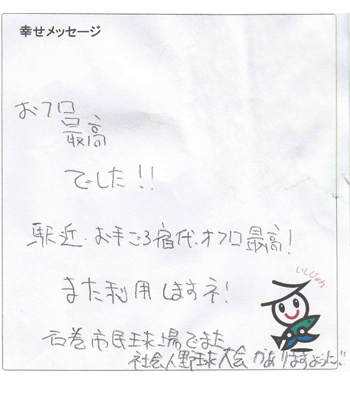 幸せメッセージ
おフロ
最高
でした!!
駅近・お手ごろ宿代、オフロ最高!
また利用しますネ!
石巻市民球場でまた
社会人野球大会がありますように!!
いしぴょん